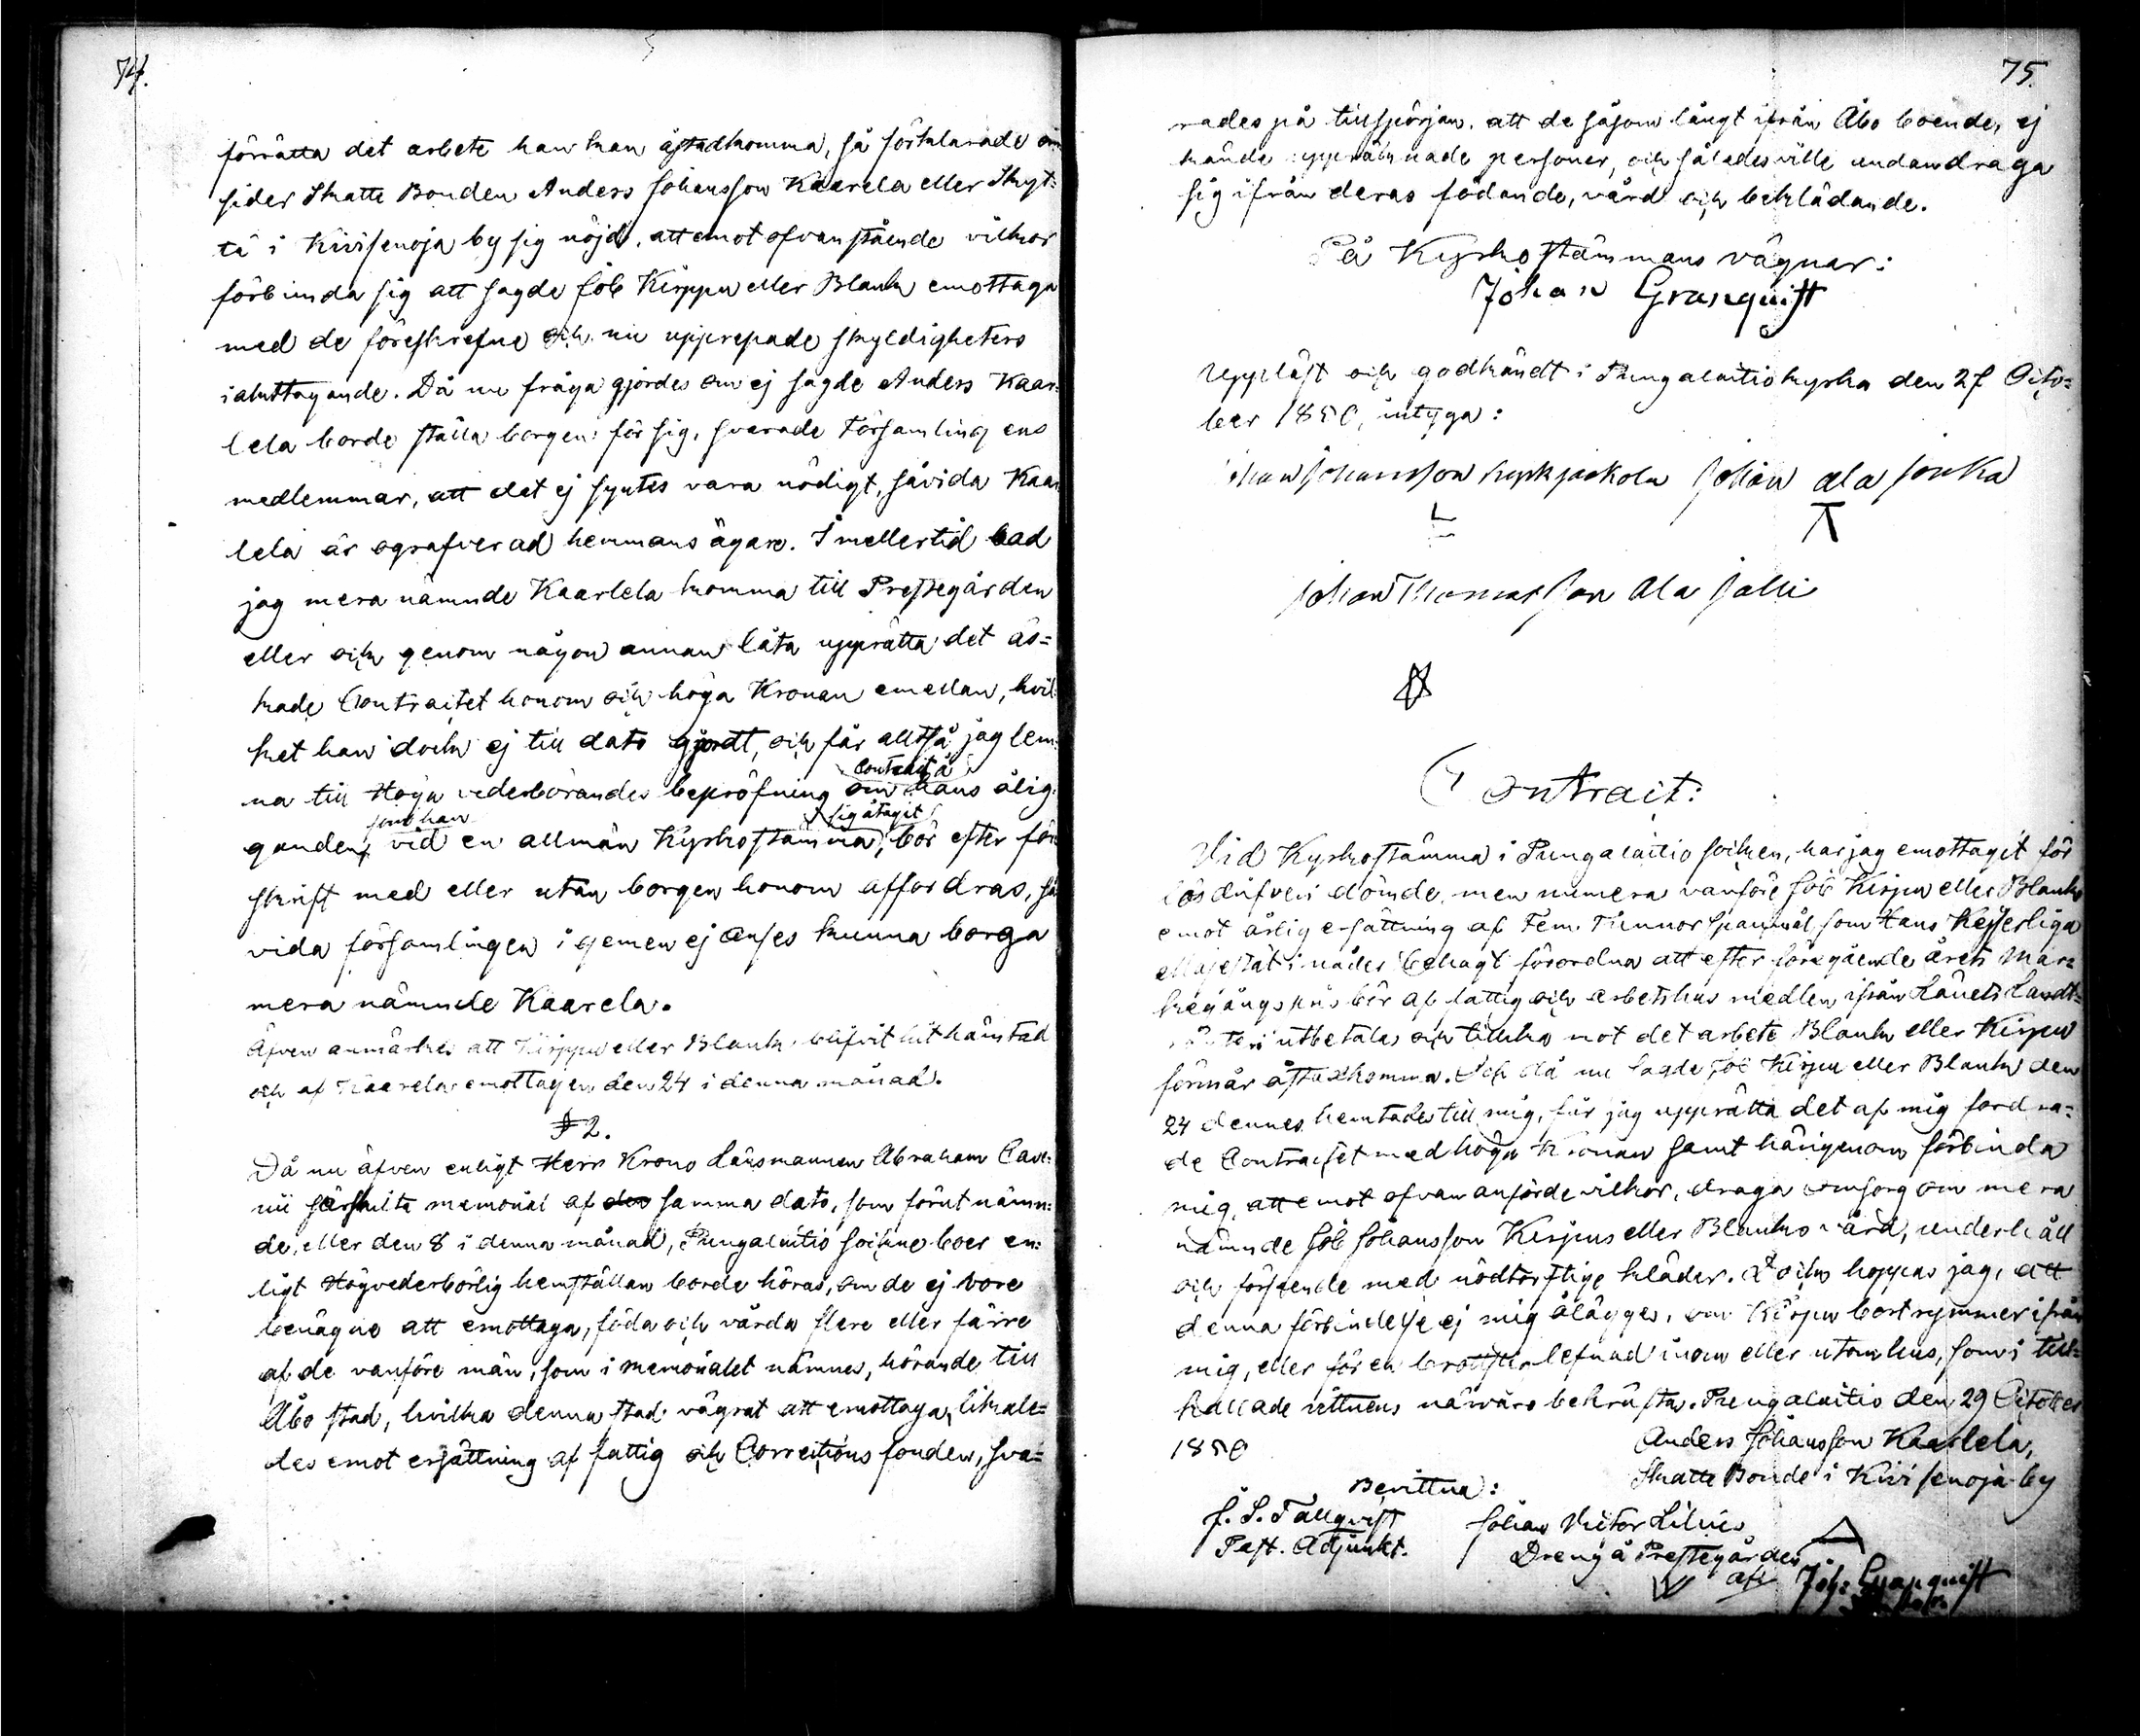 74.
förrätta det arbete han kan åstadkomma, så förklarade om
sider Skatte Bonden Anders Johansson Kaarela eller Skyt-
tä i Kiviseno ja by sig nöjd, att emot ofvanstående vilkor
förbinda sig att sagde Job Kirppu eller Blank emottaga
med de föreskrefne och nu upprepade skyldigheters
iakttagande. Då nu fråga gjordes om ej sagde Anders Kaar-
lela borde ställa borgen för sig, svarade Församlingens
medlemmar, att det ej syntes vara nödigt, såvida Kaar
lela är ograverad hemmans ägare. Imellertid bad
jag mera nämnde Kaarlela komma till Prestegården
eller och genom någon annan låta upprätta det äs-
kade Contractet honom och höga Kronan emellan, hvil-
ket han dock ej till dato gjordt, och får alltså jag lem-
na till Höga vederbörandes bepröfning om Contract å hans ålig-
ganden, som han vid en allmän Kyrkostämma sig åtagit, bör efter för-
skrift med eller utan borgen honom affordras, så
vida församlingen i gemen ej anses kunna borga
mera nämnde Kaarela.
Äfven anmärkes att Kirppu eller Blank blifvit hit hämtad
och af Kaarela emottagen den 24 i denna månad.
§ 2.
Då nu äfven enligt Herr Krono Länsmannen Abraham Cave-
nii särskilta memorial af den samma dato, som förut nämn-
de, eller den 8 i denna månad, Pungalaitio Sockne boer en-
ligt Högvederbörlig hemställan borde höras, om de ej vore
benägne att emottaga, föda och vårda flere eller färre
af de vanföre män, som i memorialet nämnes, hörande till
Åbo stad, hvilka denna stad vägrat att emottaga, likale-
des emot ersättning af fattig och Corrections fonden, sva-
75.
rades på tillspörjan, att de såsom långt ifrån Åbo boende, ej
kände uppräknade personer, och således ville undandraga
sig ifrån deras födande, vård och beklädande.
På Kyrkostämmans vägnar:
Johan Granquist
Uppläst och godkändt i Pungalaitio kyrka den 27 Octo-
ber 1850, intyga:
Johan Johansson Johan ala Jouka
Johan Thomasson Ala Jalli
Contract:
Vid Kyrkostämma i Pungalaitio Socken, har jag emottagit för
lösdrifveri dömde, men numera vanföre Job Kirpu eller Blank
emot årlig ersättning af Fem Tunnor Spannmål, som Hans Kejserliga
Majestät i nåder behagt förordna att efter föregående årets Mar-
kegångs pris bör af fattig och arbetshus medlen ifrån Länets Landt-
ränteri utbetalas och tillika mot det arbete Blank eller Kirpu
förmår åstadkomma. Och då nu sagde Job Kirpu eller Blank den
24 dennes hemtades till mig, får jag upprätta det af mig fordra-
de Contractet med höga Kronan samt härigenom förbinda
mig, att emot ofvan anförde vilkor, draga omsorg om mera
nämnde Job Johansson Kirpus eller Blanks vård, underhåll
och förseende med nödtorftige kläder. Dock hoppas jag, att
denna förbindelse ej mig ålägges, om Kirpu bortrymmer ifrån
mig, eller för en brottslig lefnad inom eller utom hus, som i till-
kallade vittnens närvaro bekräftas. Pungalaitio den 29 October
1850
Anders Johansson Kaarlela,
Skatte Bonde i Kivisenoja by
Bevittna:
J. S. Tallqvist
Past. Adjunkt.
Johan Victor Lilius
Dreng å Prestegården
afs. Joh: Granquist